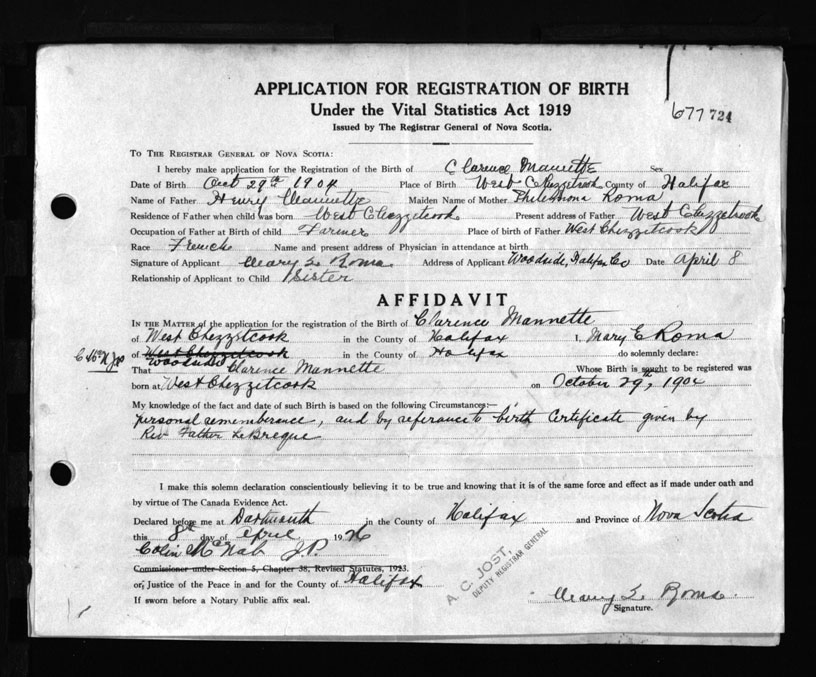 APPLICATION FOR REGISTRATION OF BIRTH
Under the Vital Statistics Act 1919
Issued by The Registrar General of Nova Scotia.
677 724
TO THE REGISTRAR GENERAL OF NOVA SCOTIA:
I hereby make application for the Registration of the Birth of Clarence Mannette Sex
Date of Birth Oct 29th 1904 Place of Birth West Chezzetcook County of Halifax
Name of Father Henry Mannette Maiden Name of Mother Philemona Roma
Residence of Father when child was born West Chezzetcook Present address of Father West Chezzetcook
Occupation of Father at Birth of child Farmer Place of birth of Father West Chezzetcook
Race French Name and present address of Physician in attendance at birth
Signature of Applicant Mary E. Roma Address of Applicant Woodside, Halifax Co Date April 8
Relationship of Applicant to Child Sister
AFFIDAVIT
IN THE MATTER of the application for the registration of the Birth of Clarence Mannette
of West Chezzitcook in the County of Halifax I, Mary E Roma
of West Chezzitcook in the County of Halifax do solemnly declare:
Woodside
That Clarence Mannette Whose Birth is sought to be registered was
born at West Chezzetcook on October 29th, 1904
My knowledge of the fact and date of such Birth is based on the following Circumstances:—
personal rememberance, and by referance to birth Certificate given by
Rev Father LeBreque
I make this solemn declaration conscientiously believing it to be true and knowing that it is of the same force and effect as if made under oath and
by virtue of The Canada Evidence Act.
Declared before me at Dartmouth in the County of Halifax and Province of Nova Scotia
this 8th day of April 1926
Colin McNab J.P.
Commissioner under Section 5, Chapter 38, Revised Statutes, 1923.
or, Justice of the Peace in and for the County of Halifax
If sworn before a Notary Public affix seal.
A. C. JOST,
DEPUTY REGISTRAR GENERAL
Mary E. Roma
Signature.